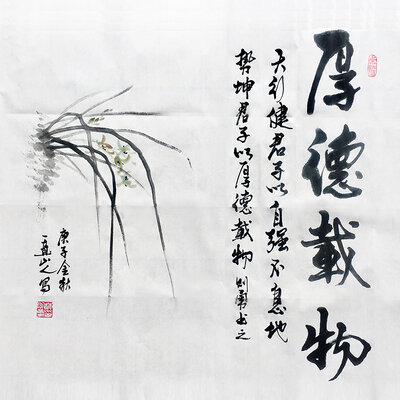 厚德載物
天行健君子以自强不息地
势坤君子以厚德載物 则勇书之
庚子金秋
写